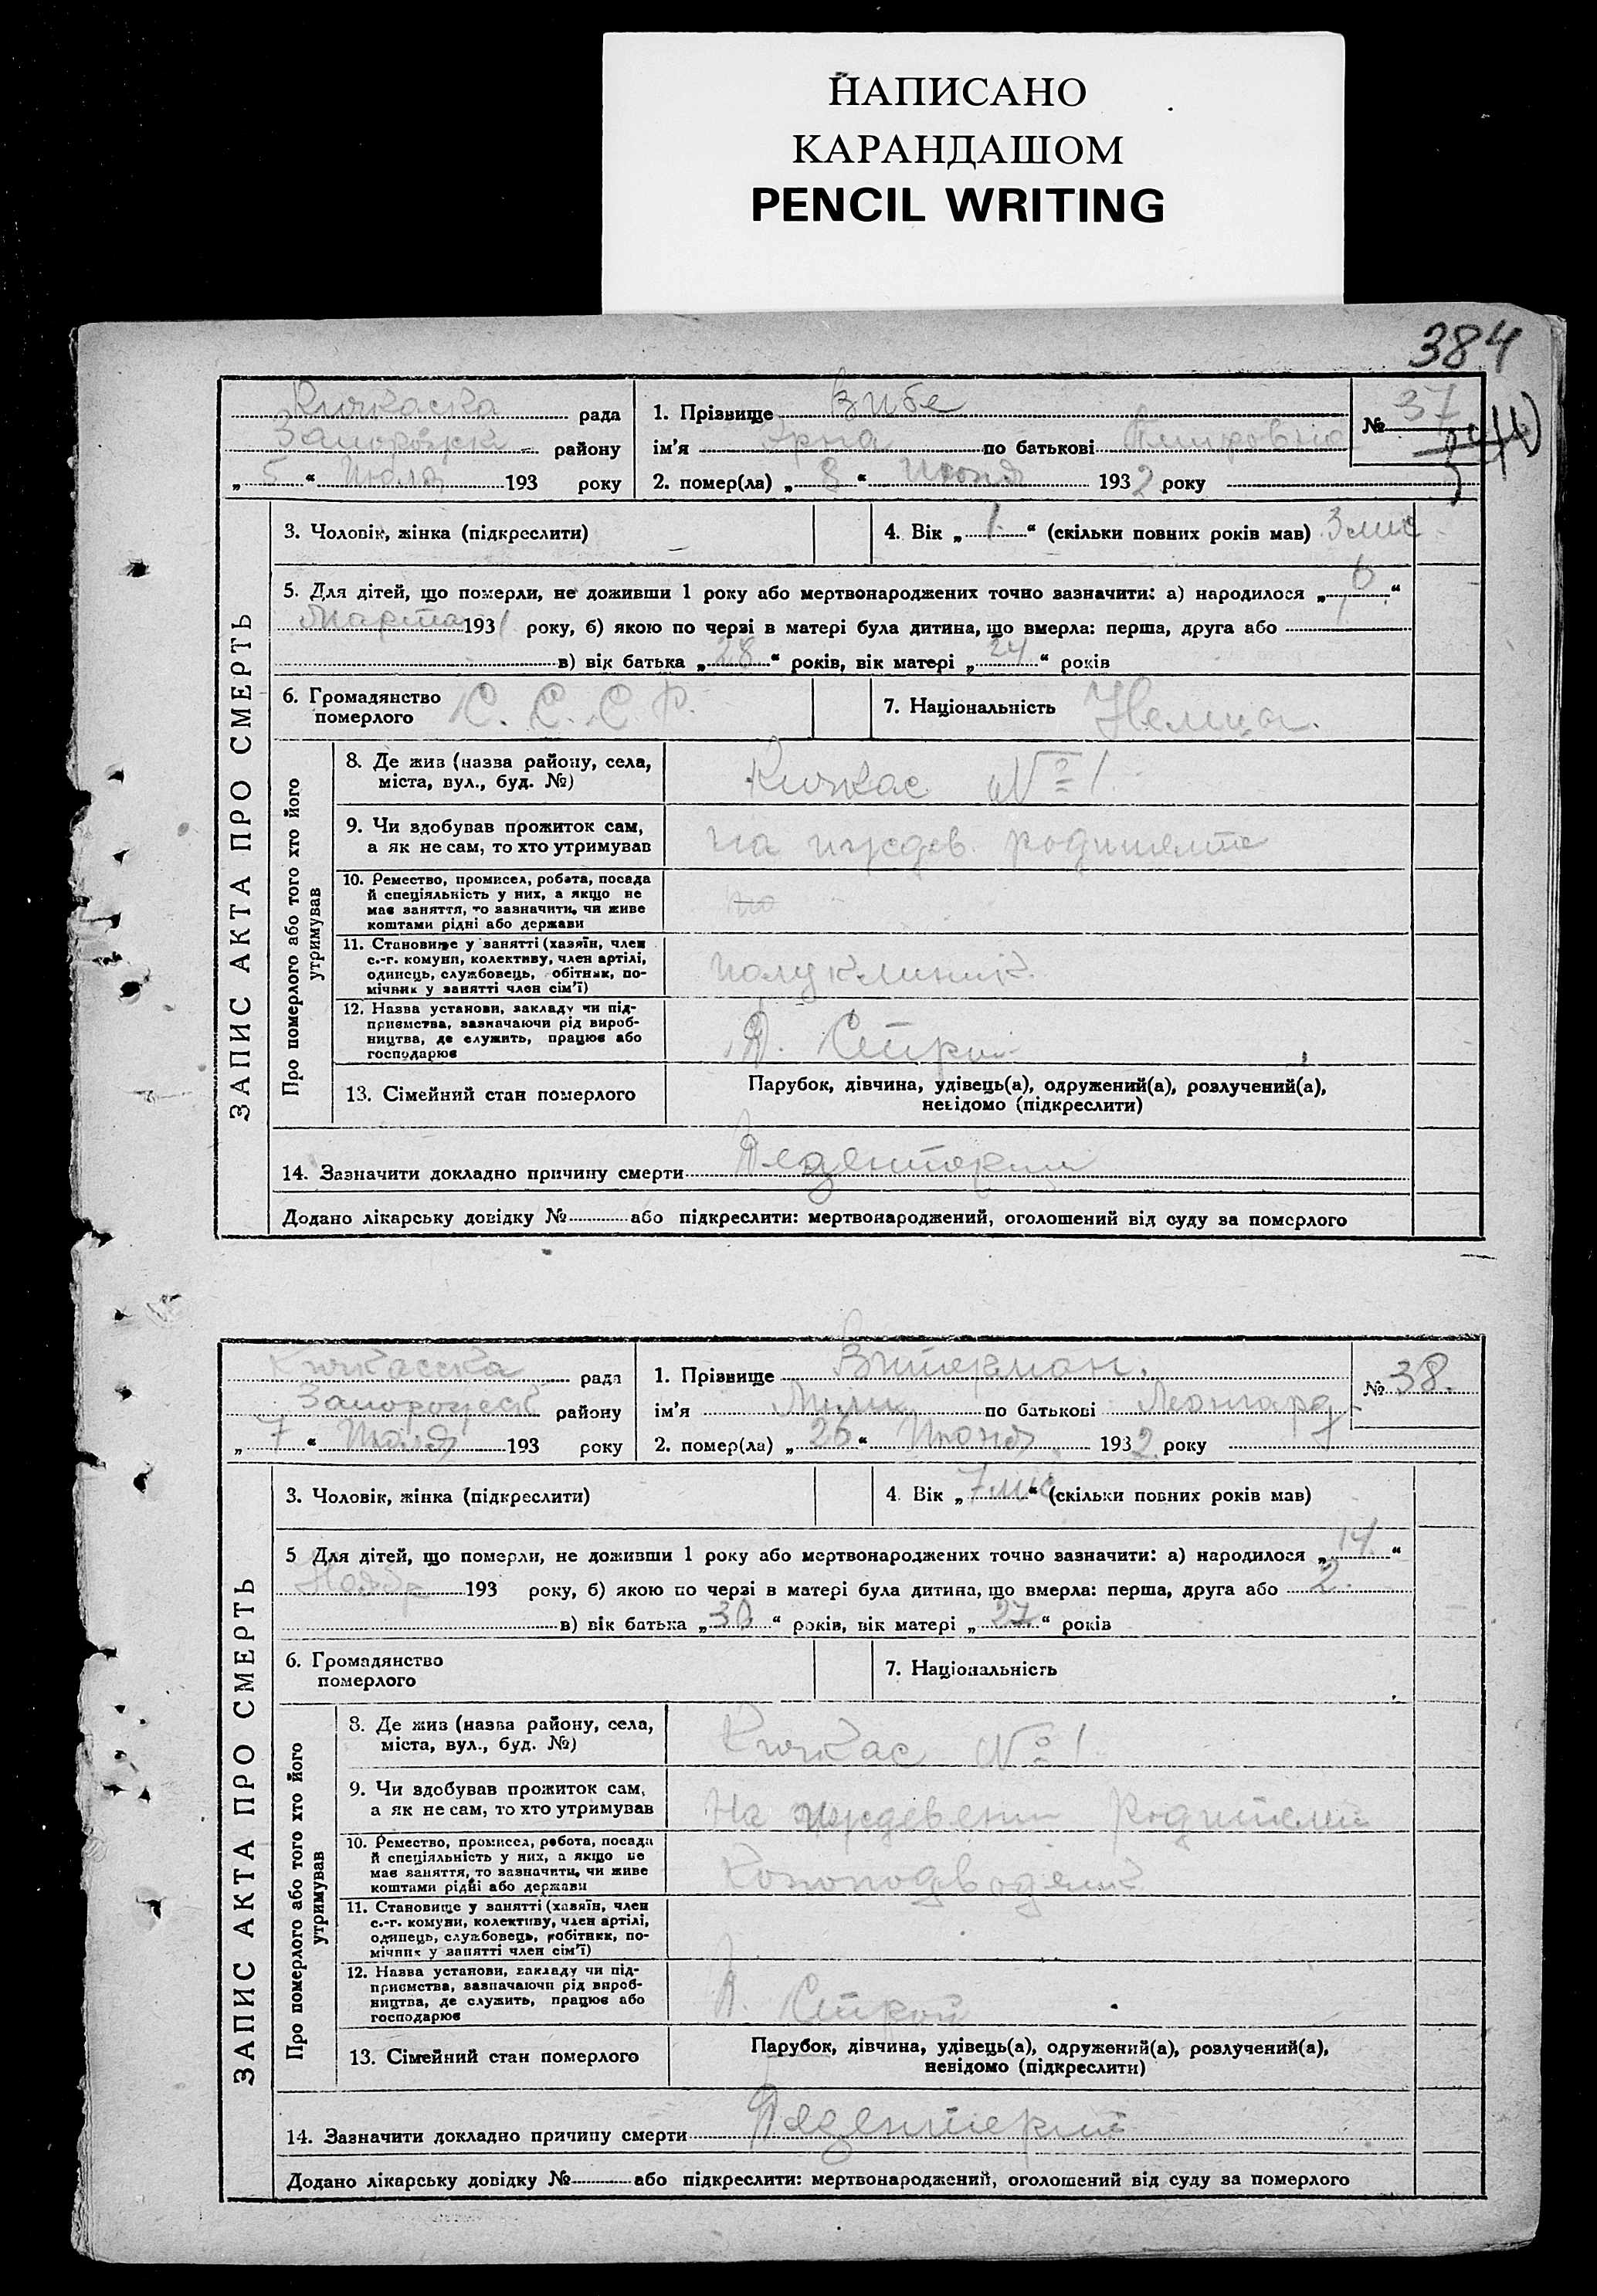 НАПИСАНО
КАРАНДАШОМ
PENCIL WRITING
384
Кичкаска рада
района району
„ 5 “ Июля 193 року
1. Прізвище Вибе
ім'я Эрна по батькові
2. помер(ла) „ 8 “ Июня 1932 року
№ 37
ЗАПИС АКТА ПРО СМЕРТЬ
3. Чоловік, жінка (підкреслити)
4. Вік „ 1 “ (скільки повних років мав) 3 мис
5. Для дітей, що померли, не доживши 1 року або мертвонароджених точно зазначити: а) народилося „ 6 “
Марта 1931 року, б) якою по черзі в матері була дитина, що вмерла: перша, друга або
в) вік батька „ 28 “ років, вік матері „ 24 “ років
6. Громадянство
померлого С. С. С. Р.
7. Національність Немка.
Про померлого або того хто його
утримував
8. Де жив (назва району, села,
міста, вул., буд. №) Кичкас № 1.
9. Чи здобував прожиток сам,
а як не сам, то хто утримував на иждев.
10. Ремество, промисел, робота, посада
й спеціяльність у них, а якщо не
має заняття, то зазначити, чи живе
коштами рідні або держави
11. Становище у занятті (хазяїн, член
с.-г. комуни, колективу, член артілі,
одинець, службовець, робітник, по-
мічник у занятті член сім'ї)
12. Назва установи, закладу чи під-
приємства, зазначаючи рід вироб-
ництва, де служить, працює або
господарює
13. Сімейний стан померлого
Парубок, дівчина, удівець(а), одружений(а), розлучений(а),
невідомо (підкреслити)
14. Зазначити докладно причину смерти
Додано лікарську довідку № або підкреслити: мертвонароджений, оголошений від суду за померлого
Кичкасска рада
Запорожск району
„ 7 “ Июля 193 року
1. Прізвище Витерман.
ім'я по батькові Леонгард
2. помер(ла) „ 26 “ Июня 1932 року
№ 38.
ЗАПИС АКТА ПРО СМЕРТЬ
3. Чоловік, жінка (підкреслити)
4. Вік „ 7 мис “ (скільки повних років мав)
5 Для дітей, що померли, не доживши 1 року або мертвонароджених точно зазначити: а) народилося „ 14. “
Ноябр 193 року, б) якою по черзі в матері була дитина, що вмерла: перша, друга або 2.
в) вік батька „ 30 “ років, вік матері „ 27 “ років
6. Громадянство
померлого
7. Національність
Про померлого або того хто його
утримував
8. Де жив (назва району, села,
міста, вул., буд. №) Кичкас № 1
9. Чи здобував прожиток сам,
а як не сам, то хто утримував На
10. Ремество, промисел, робота, посада
й спеціяльність у них, а якщо не
має заняття, то зазначити, чи живе
коштами рідні або держави
11. Становище у занятті (хазяїн, член
с.-г. комуни, колективу, член артілі,
одинець, службовець, робітник, по-
мічник у занятті член сім'ї)
12. Назва установи, закладу чи під-
приємства, зазначаючи рід вироб-
ництва, де служить, працює або
господарює Д. Строй
13. Сімейний стан померлого
Парубок, дівчина, удівець(а), одружений(а), розлучений(а),
невідомо (підкреслити)
14. Зазначити докладно причину смерти
Додано лікарську довідку № або підкреслити: мертвонароджений, оголошений від суду за померлого